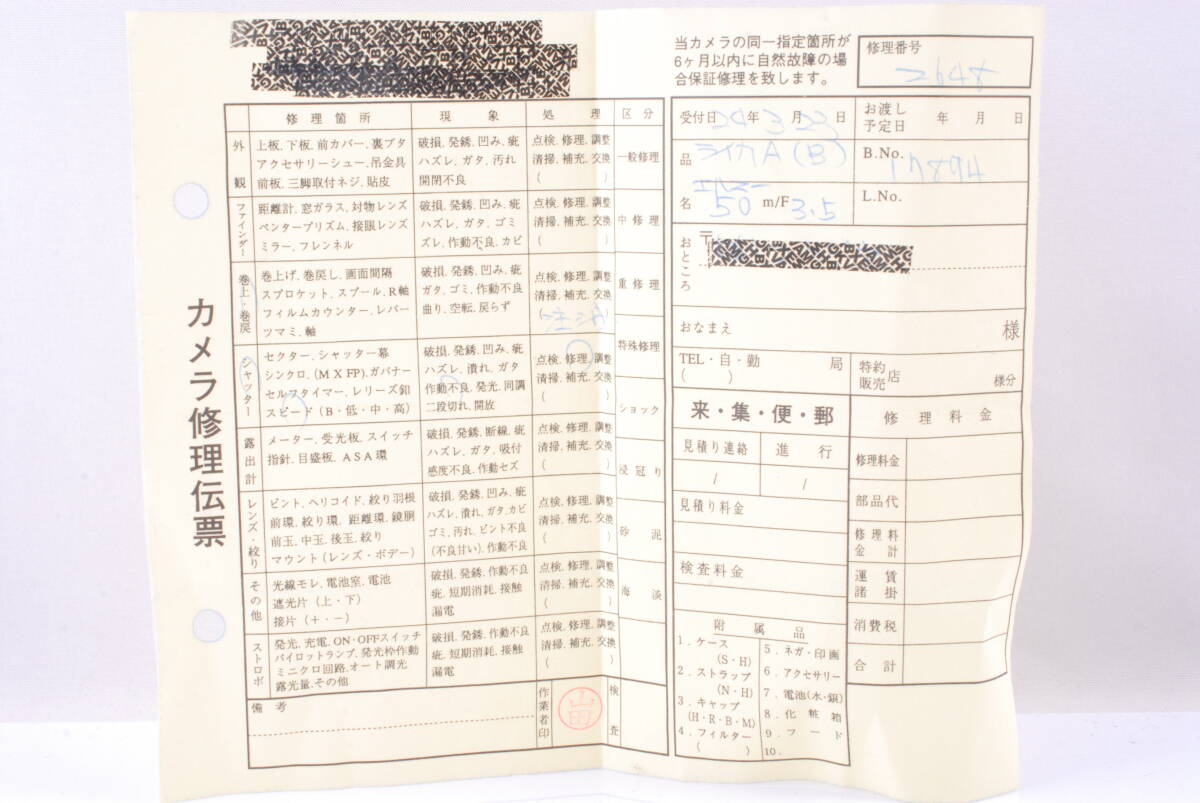 カメラ修理伝票
修理箇所 現象 処理 区分
外観
上板.下板.前カバー.裏ブタ
アクセサリーシュー.吊金具
前板.三脚取付ネジ.貼皮
破損.発銹.凹み.疵
ハズレ.ガタ.汚れ
開閉不良
点検.修理.調整
清掃.補充.交換
( )
一般修理
ファインダー
距離計.窓ガラス.対物レンズ
ペンタープリズム.接眼レンズ
ミラー.フレンネル
破損.発銹.凹み.疵
ハズレ.ガタ.ゴミ
ズレ.作動不良.カビ
点検.修理.調整
清掃.補充.交換
( )
中修理
巻上・巻戻
巻上げ.巻戻し.画面間隔
スプロケット.スプール.R軸
フィルムカウンター.レバー
ツマミ.軸
破損.発銹.凹み.疵
ガタ.ゴミ.作動不良
曲り.空転.戻らず
点検.修理.調整
清掃.補充.交換
(注油)
重修理
シャッター
セクター.シャッター幕
シンクロ.(MXFP).ガバナー
セルフタイマー.レリーズ釦
スピード(B・低・中・高)
破損.発銹.凹み.疵
ハズレ.潰れ.ガタ
作動不良.発光.同調
二段切れ.開放
点検.修理.調整
清掃.補充.交換
( )
特殊修理
ショック
露出計
メーター.受光板.スイッチ
指針.目盛板.ASA環
破損.発銹.断線.疵
ハズレ.ガタ.吸付
感度不良.作動セズ
点検.修理.調整
清掃.補充.交換
( )
浸冠り
レンズ・絞り
ピント.ヘリコイド.絞り羽根
前環.絞り環.距離環.鏡胴
前玉.中玉.後玉.絞り
マウント(レンズ・ボデー)
破損.発銹.凹み.疵
ハズレ.潰れ.ガタ.カビ
ゴミ.汚れ.ピント不良
(不良甘い).作動不良
点検.修理.調整
清掃.補充.交換
( )
砂泥
その他
光線モレ.電池室.電池
遮光片(上・下)
接片(+・-)
破損.発銹.作動不良
疵.短期消耗.接触
漏電
点検.修理.調整
清掃.補充.交換
( )
海淡
ストロボ
発光.充電.ON・OFFスイッチ
パイロットランプ.発光枠作動
ミニクロ回路.オート調光
露光量.その他
破損.発銹.作動不良
疵.短期消耗.接触
漏電
点検.修理.調整
清掃.補充.交換
( )
備考
作業者印
山田
検査
当カメラの同一指定箇所が
6ヶ月以内に自然故障の場
合保証修理を致します。
修理番号
2648
受付日 24年3月23日
お渡し予定日 年 月 日
品名
ライカA(B)
エルマー
50 m/F 3.5
B.No.
17894
L.No.
〒
おところ
おなまえ 様
TEL・自・勤 局
( )
特約販売店 様分
来・集・便・郵
見積り連絡 進行
/ /
見積り料金
検査料金
修理料金
修理料金
部品代
修理料金計
運賃諸掛
消費税
合計
附属品
1.ケース
(S・H)
2.ストラップ
(N・H)
3.キャップ
(H・R・B・M)
4.フィルター
( )
5.ネガ・印画
6.アクセサリー
7.電池(水・銀)
8.化粧箱
9.フード
10.